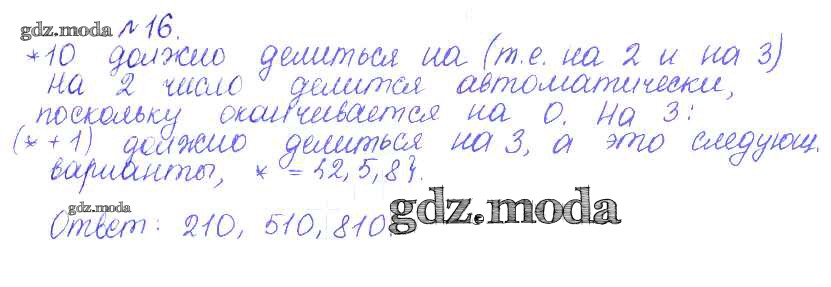 gdz.moda №16.
*10 должно делиться на (т.е. на 2 и на 3)
На 2 число делится автоматически,
поскольку оканчивается на 0. На 3:
(* + 1) должно делиться на 3, а это следующ.
варианты, * = {2, 5, 8}.
gdz.moda
Ответ: 210, 510, 810.
gdz.moda